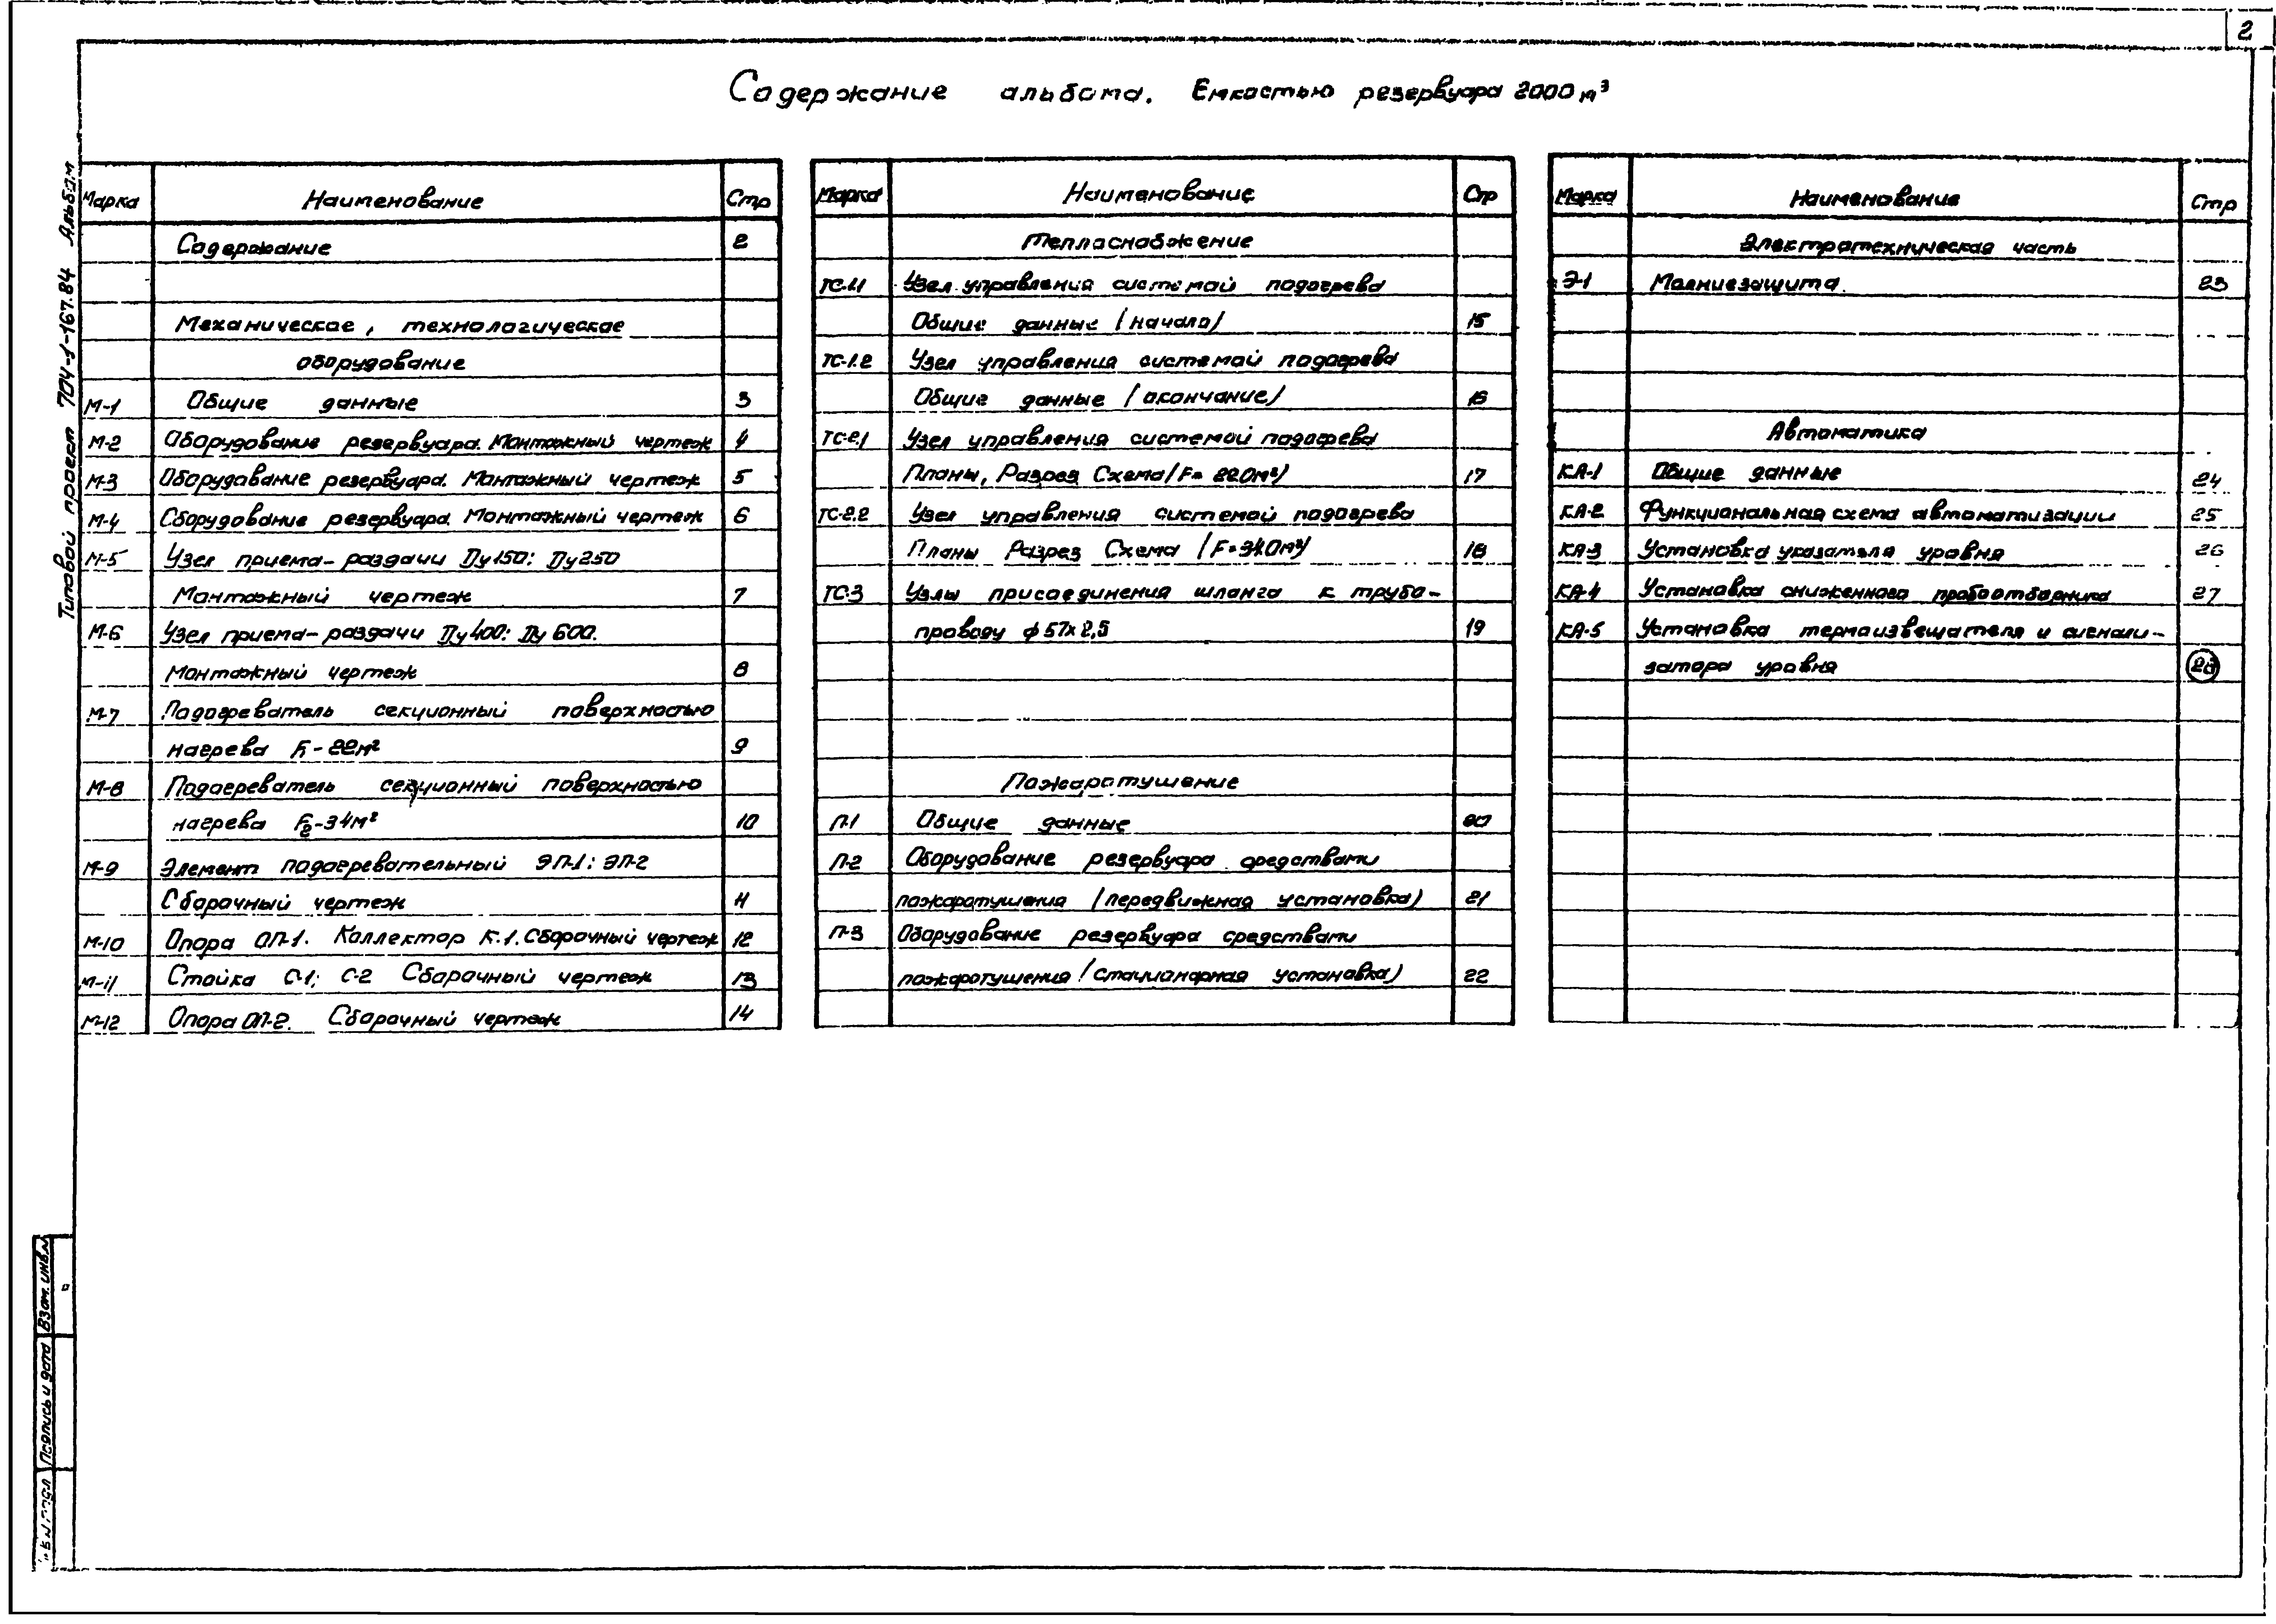 2
Содержание альбома. Емкостью резервуара 2000 м³
Типовой проект 704-1-167.84 Альбом
Марка Наименование Стр
Содержание 2
Механическое, технологическое
оборудование
М-1 Общие данные 3
М-2 Оборудование резервуара. Монтажный чертеж 4
М-3 Оборудование резервуара. Монтажный чертеж 5
М-4 Оборудование резервуара. Монтажный чертеж 6
М-5 Узел приема-раздачи Ду150: Ду250
Монтажный чертеж 7
М-6 Узел приема-раздачи Ду400: Ду 600.
Монтажный чертеж 8
М-7 Подогреватель секционный поверхностью
нагрева F₁-22м² 9
М-8 Подогреватель секционный поверхностью
нагрева F₂-34м² 10
М-9 Элемент подогревательный ЭП-1: ЭП-2
Сборочный чертеж 11
М-10 Опора ОП-1. Коллектор К.1. Сборочный чертеж 12
М-11 Стойка С-1; С-2 Сборочный чертеж 13
М-12 Опора ОП-2. Сборочный чертеж 14
Марка Наименование Стр
Теплоснабжение
ТС-1.1 Узел управления системой подогрева
Общие данные (начало) 15
ТС-1.2 Узел управления системой подогрева
Общие данные (окончание) 16
ТС-2.1 Узел управления системой подогрева
Планы, Разрез Схема (F= 220м²) 17
ТС-2.2 Узел управления системой подогрева
Планы Разрез Схема (F=340м²) 18
ТС-3 Узлы присоединения шланга к трубо-
проводу ф 57х2,5 19
Пожаротушение
П-1 Общие данные 20
П-2 Оборудование резервуара средствами
пожаротушения (передвижная установка) 21
П-3 Оборудование резервуара средствами
пожаротушения (стационарная установка) 22
Марка Наименование Стр
Электротехническая часть
Э-1 Молниезащита. 23
Автоматика
КА-1 Общие данные 24
КА-2 Функциональная схема автоматизации 25
КА-3 Установка указателя уровня 26
КА-4 Установка сниженного пробоотборника 27
КА-5 Установка термоизвещателя и сигнали-
затора уровня 28
Взам. инв.N
Подпись и дата